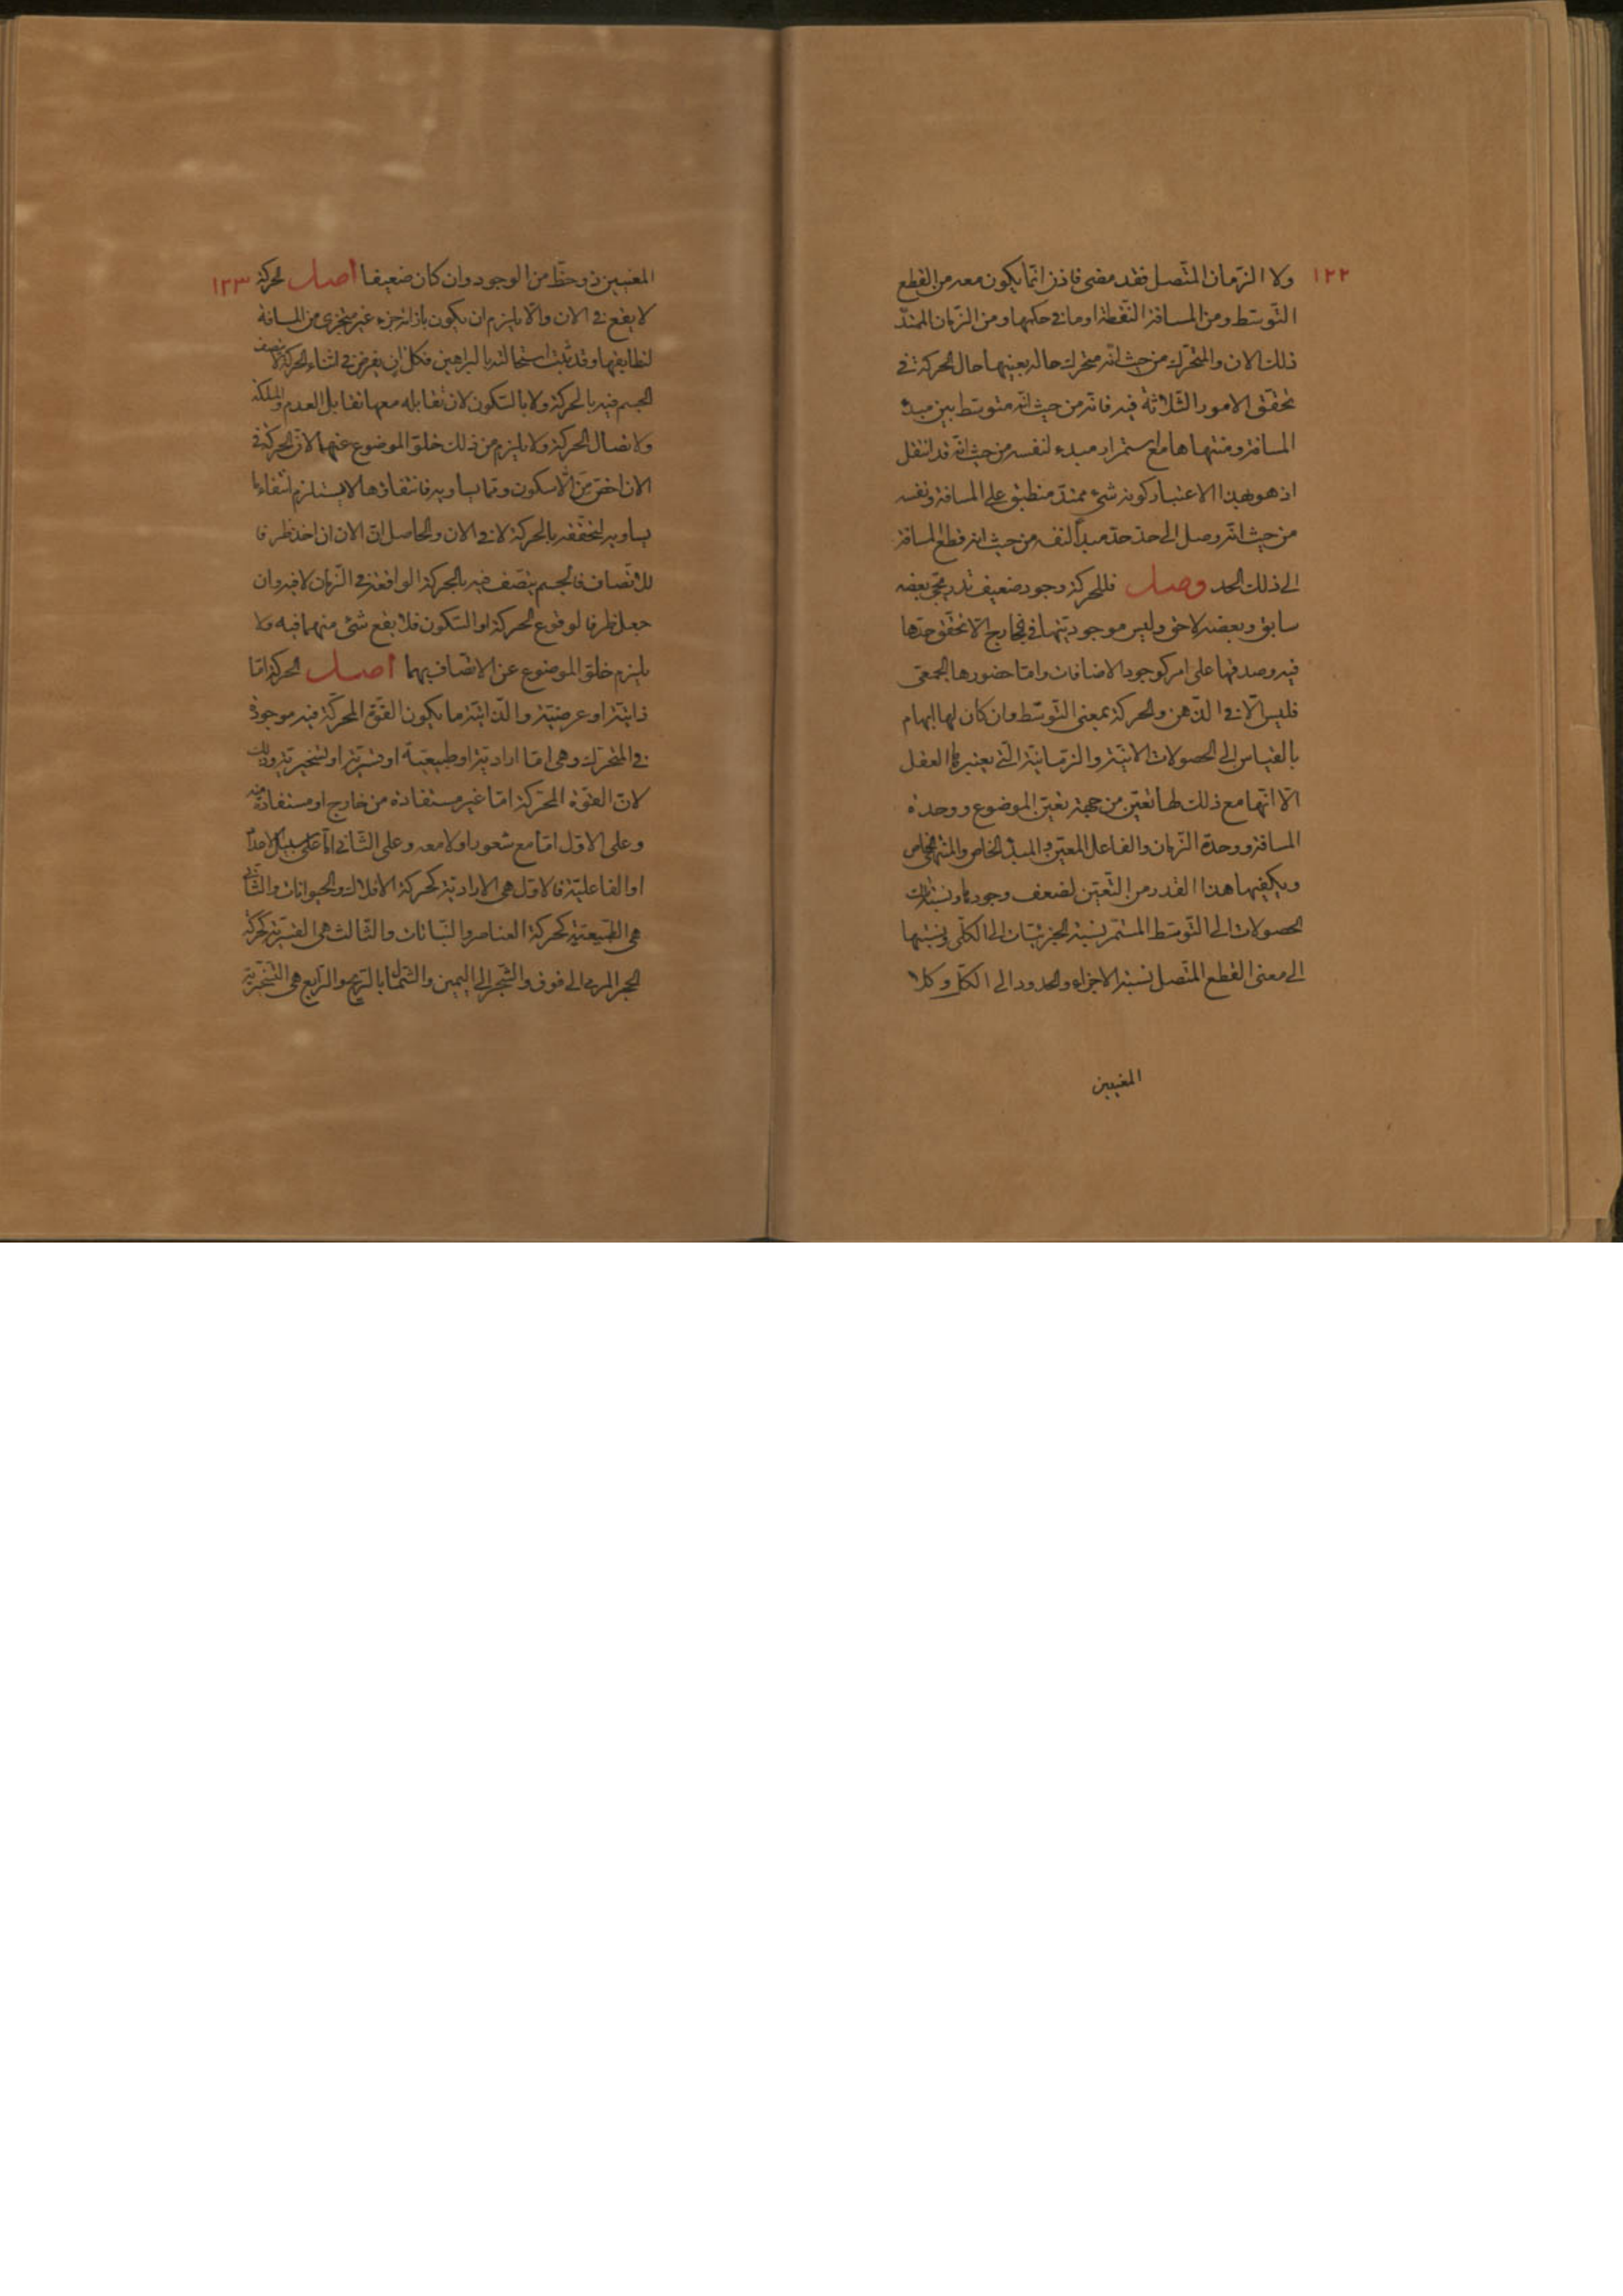 ١٢٢
ولا الزمان المتّصل فقد مضى فاذن انّما يكون معه من القطع
التوسّط ومن المسافة النّقطة او ما فى حكمها ومن الزّمان الممتدّ
ذلك الان والمتحرّك من حيث انّه متحرك حاله بعينها حال الحركة فى
تحقّق الامور الثّلاثة فيه فانّه من حيث انّه متوسّط بين مبدء
المسافة ومنتهاها مع استمراره مبدء لنفسه من حيث انّه قد انتقل
اذ هو بهذا الاعتبار كونه شىء ممتدّ منطبق على المسافة ونفسه
من حيث انّه وصل الى حدّ حدّ مبدأ لنفسه من حيث انه قطع المسافة
الى ذلك الحد وصل فللحركة وجود ضعيف تدريجى بعضه
سابق وبعضه لاحق وليس موجوديّتها فى الخارج الّا تحقّق حدّها
فيه وصدقها على امر كوجود الاضافات وامّا حضورها الجمعى
فليس الّا فى الذّهن والحركة بمعنى التوسّط وان كان لها ابهام
بالقياس الى الحصولات الانيّة والزّمانيّة الّتى يعتبرها العقل
الّا انّها مع ذلك لها تعيّن من جهة تعيّن الموضوع ووحدة
المسافة ووحدة الزّمان والفاعل المعيّن والمبدء الخاص والمنتهى الخاص
ويكفيها هذا القدر من التّعيّن لضعف وجودها ونسبة تلك
الحصولات الى التّوسّط المستمر نسبة الجزئيّات الى الكلّى ونسبتها
الى معنى القطع المتّصل نسبة الاجزاء والحدود الى الكلّ وكلا
المعنيين
١٢٣
المعنيين ذو حظّ من الوجود وان كان ضعيفا اصل الحركة
لا يقع فى الان والّا يلزم ان يكون بازائه جزء غير متجزى من المسافة
لتطابقها وقد ثبت استحالته بالبراهين فكل ان يفرض فى اثناء الحركة لا يتصف
الجسم فيه بالحركة ولا بالسّكون لان تقابله معها تقابل العدم والملكة
ولاتصال الحركة ولا يلزم من ذلك خلوّ الموضوع عنهما لانّ الحركة فى
الان اخصّ من الّلاسكون وممّا يساويه فانتفاؤها لا يستلزم انتفاء ما
يساويه لتحقّقه بالحركة لا فى الان والحاصل انّ الان ان اخذ ظرفا
للاتّصاف فالجسم يتّصف فيه بالحركة الواقعة فى الزّمان لا فيه وان
جعل ظرفا لوقوع الحركة او السّكون فلا يقع شىء منهما فيه ولا
يلزم خلوّ الموضوع عن الاتّصاف بهما اصل الحركة امّا
ذاتيّة او عرضيّة والذّاتيّة ما يكون القوّة المحرّكة فيه موجودة
فى المتحرّك وهى امّا اراديّة او طبيعيّة او قسريّة او تسخيريّة وذلك
لانّ القوّة المحرّكة امّا غير مستفادة من خارج او مستفادة منه
وعلى الاوّل امّا مع شعور او لا معه وعلى الثّانى امّا على سبيل الاعداد
او الفاعليّة فالاوّل هى الاراديّة كحركة الافلاك والحيوانات والثّانى
هى الطّبيعيّة كحركة العناصر والنّباتات والثّالث هى القسريّة كحركة
الحجر المرمى الى فوق والشّجر الى اليمين والشّمال بالرّيح والرّابع هى التسخيريّة